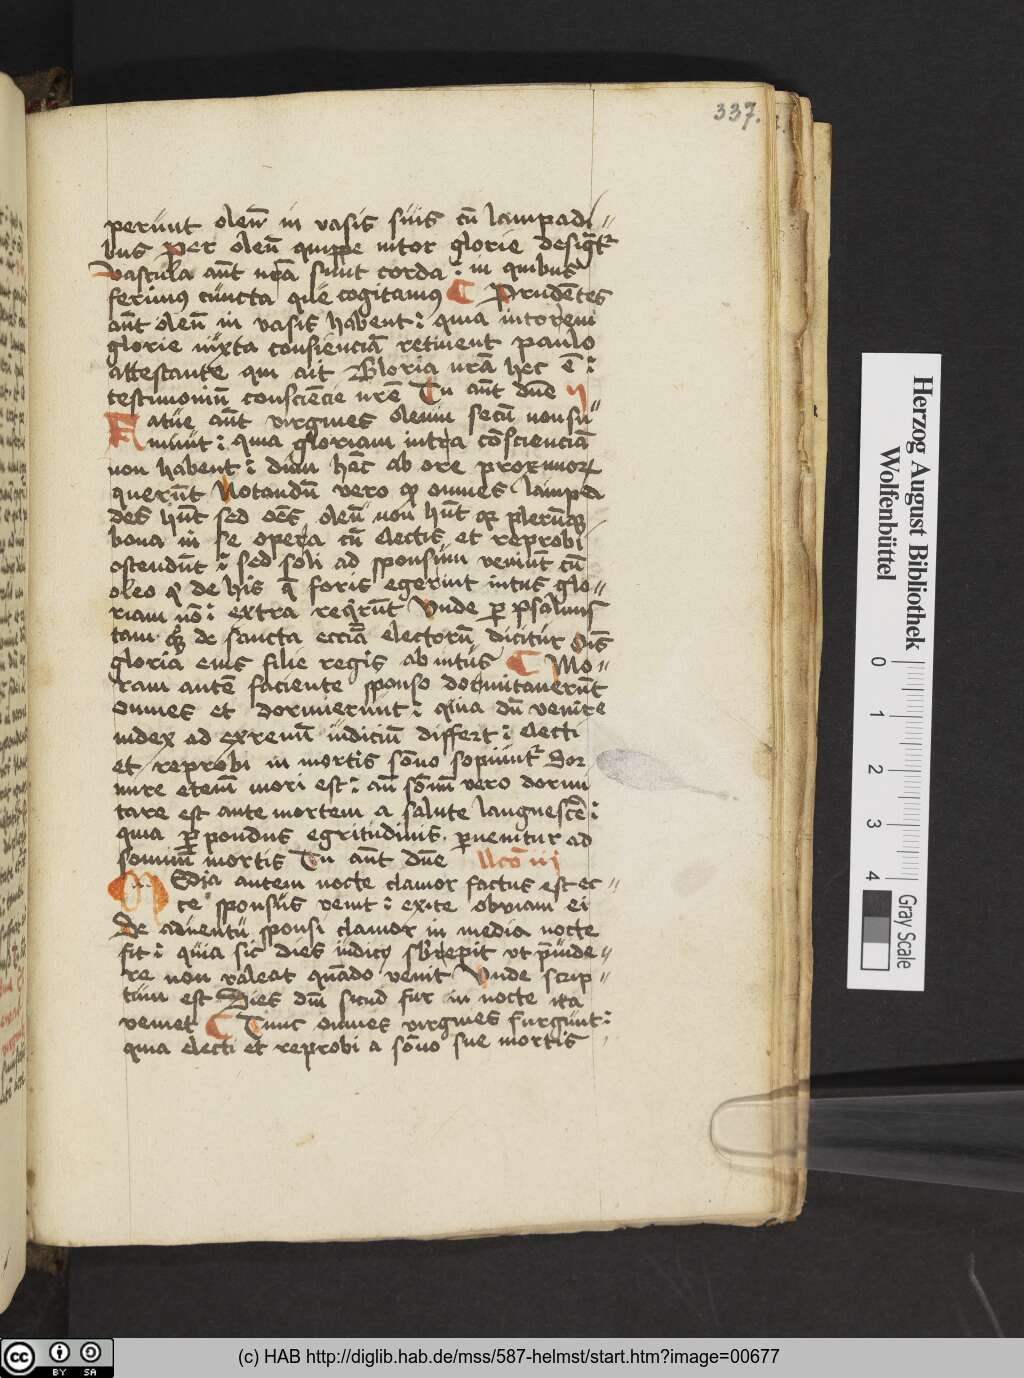 337.
perunt oleū in vasis suis cū lampadi
bus Per oleū quippe nitor glorie desigt͛
Vascula aūt nrā sunt corda : in quibus
ferimus cuncta que cogitamus Prudētes
aūt oleū in vasis habent : quia nitorem
glorie iuxta consienciā retinent paulo
attestante qui ait Gloria nrā hec ē :
testimoniū consciēcie nrē Tu aūt dn̄e
Fatue aūt virgines oleum secū non su
miūt : quia gloriam intra cōscienciā
non habent : dum hāc ab ore proximoꝝ
querūt Notandū vero ꝙ omnes lampa
des hn̄t sed oēs oleū non hn̄t qꝛ plerūqꝫ
bona in se opera cū electis et reprobi
ostendūt : sed soli ad sponsum veniūt cū
oleo ꝙ de his q̄ foris egerint intus glo
riam nō : extra reqrūt Vnde ꝑ psalmis
tam qꝫ de sancta eccīa electorū dicitur Oīs
gloria eius filie regis ab intus Mo
ram autē faciente sponso dormitauerūt
omnes et dormierunt : quia dū venire
iudex ad extremū iudiciū differt : electi
et reprobi in mortis sōno sopiunt͛ Dor
mire etenī mori est : an̄ sōnū vero dormi
tare est ante mortem a salute languescē :
quia ꝑ pondus egritudinis ꝑuenitur ad
somnū mortis Tu aūt dn̄e Lcō iij
Media autem nocte clamor factus est ec
ce sponsus venit : exite obuiam ei
De aduentu sponsi clamor in media nocte
fit : quia sic dies iudicij sbrepit vt p̄uide
re non valeat quādo venit Vnde scrip
tum est Dies dnī sicud fur in nocte ita
veniet Tunc omnes virgines surgunt :
quia electi et reprobi a sōno sue mortis
Herzog August Bibliothek
Wolfenbüttel
0 1 2 3 4
Gray Scale
cc BY SA
(c) HAB http://diglib.hab.de/mss/587-helmst/start.htm?image=00677